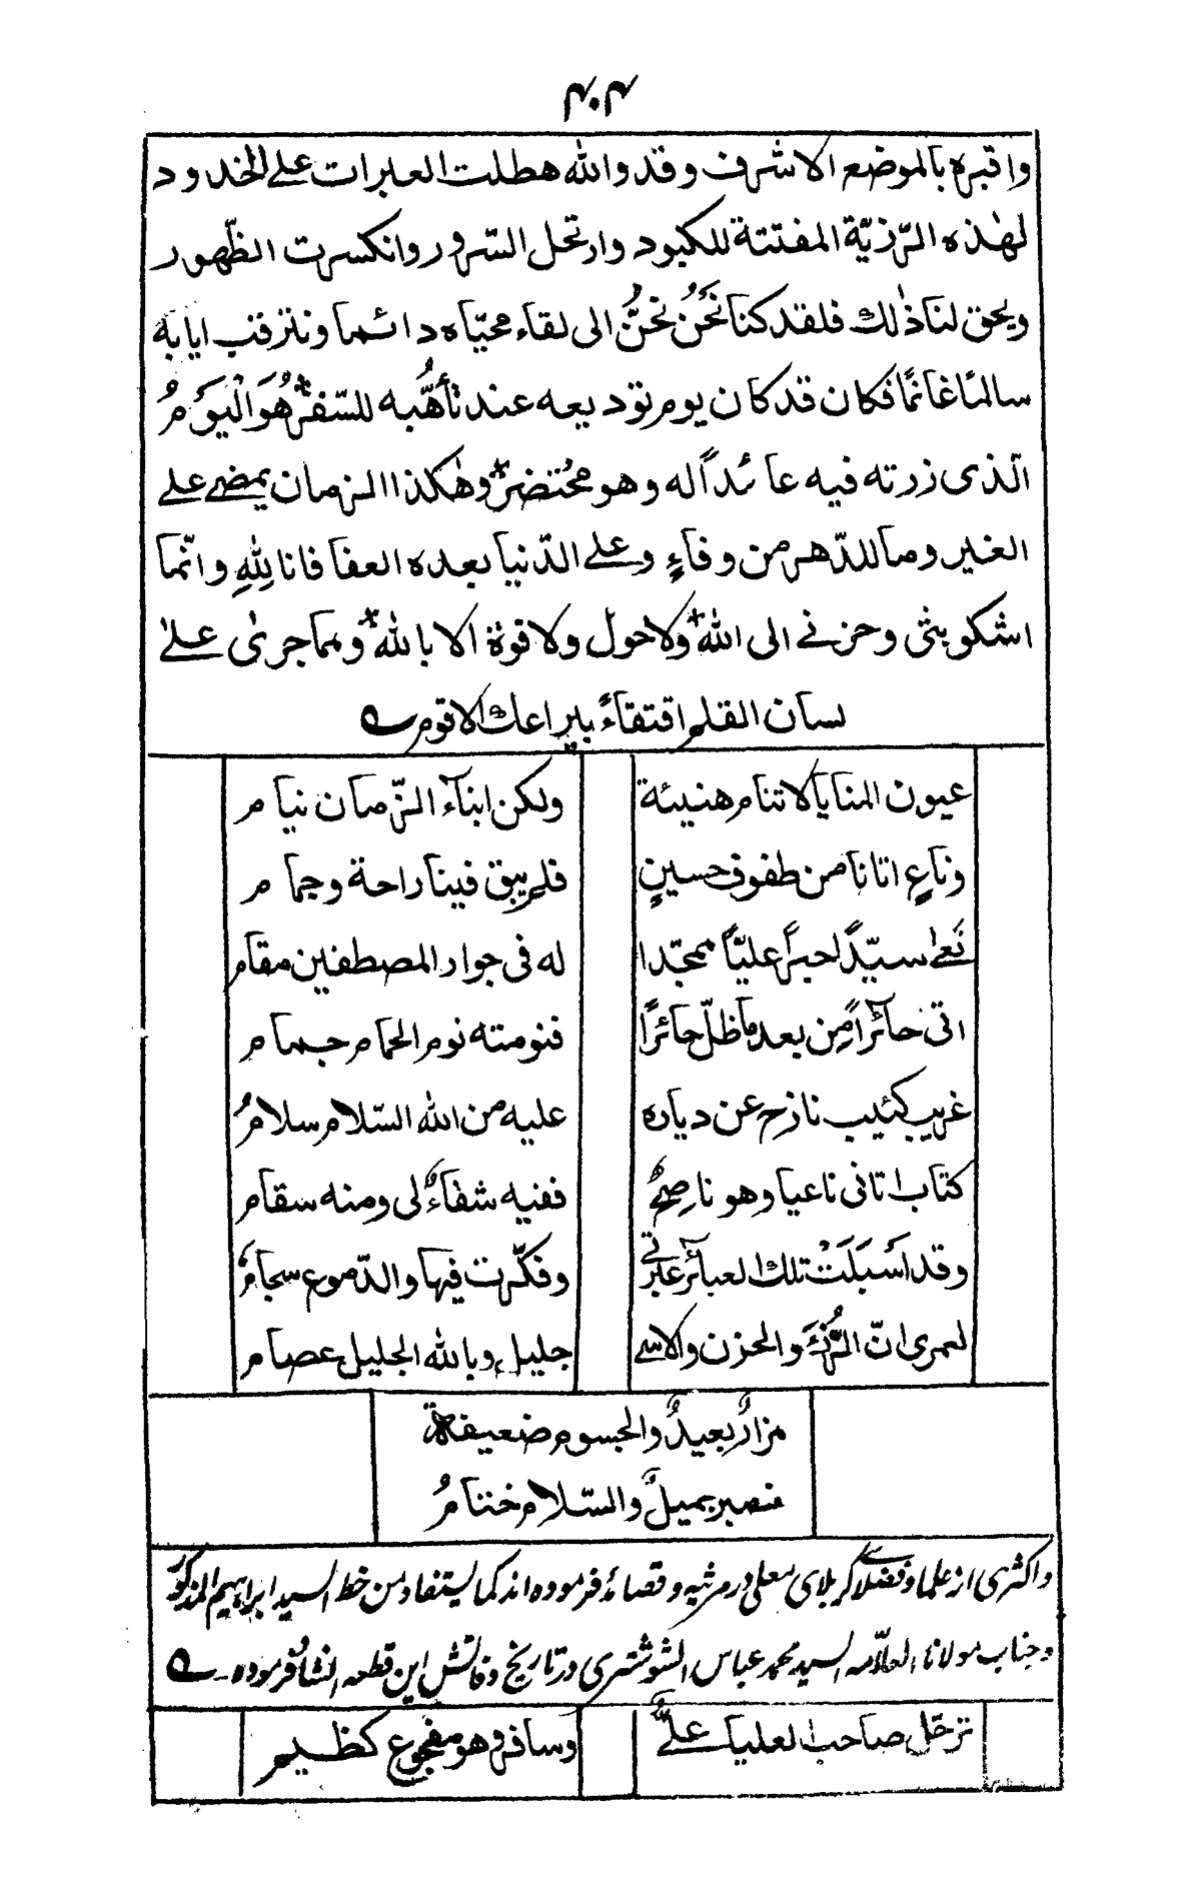 ۴۰۴
واقبره بالموضع الاشرف وقد والله هطلت العبرات على الخدود
لهٰذه الرّزيّة المفتتة للكبود وارتحل السّرور وانكسرت الظّهور
ويحق لنا ذٰلك فلقد كنا نَحْنُ نحنُّ الى لقاء محيّاه دائما ونترقب ايابه
سالمًا غانمًا فكان قد كان يوم توديعه عند تأهُّبه للسّفر هُوَ الْيَوْمُ
الّذى زرته فيه عائداً له وهو مُحتضر وهٰكذا الزمان يمضے علے
الغير وما للدّهر من وفاءٍ وعلے الدّنيا بعده العفا فانا لِلّٰهِ وانّما
اشكو بثى وحزنے الى اللّٰه ولا حول ولا قوة الا باللّٰه ومما جرىٰ علىٰ
لسان القلم اقتفاءً بيراعك الاقوم
عيون المنايا لا تنام هنيئة ولكن ابناء الزّمان نيام
وناعٍ اتانا من طفوف حسينٍ فلم يبق فينا راحة وجمام
نَعٰى سيّدًا حبرًا عليًّا ممجّدا له فى جوار المصطفين مقام
اتى حائرًا مِن بعد ما ظلّ حائرًا فنومته نوم الحمام حمام
غريب كئيب نازح عن دياره عليه من اللّٰه السّلام سلامُ
كتاب اتانى ناعيا وهو ناصِحٌ ففيه شفاءٌ لى ومنه سقام
وقد اَسبَلَتْ تلك العبائر عبرتى وفكّرت فيها والدّموع سجامُ
لعمرى انّ الرُّزْءَ والحزن والاسے جليل وباللّٰه الجليل عصام
مزارٌ بعيدٌ والجسوم ضعيفة
فصبر جميلٌ والسّلام ختامُ
واكثرى از علما وفضلاے كربلاى معلى در مرثيه وقصائد فرموده اند كما يستفاد من خط السيد ابراهيم المذكور
وجناب مولانا العلّامه السيد محمد عباس الشوشترى در تاريخ وفاتش اين قطعه انشا فرموده
ترحّل صاحب العلياء علىٌّ وسافر وهو مفجوع كظيم